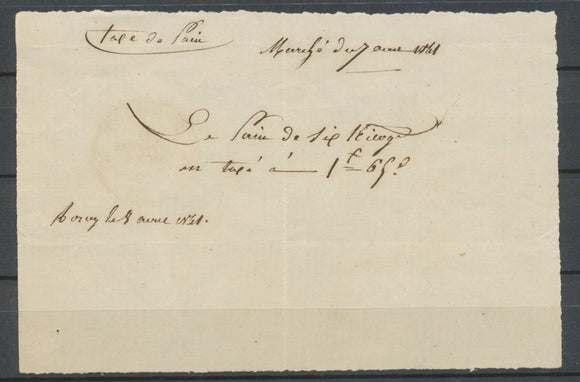 taxe de Pain
Marché du 7 avril 1841
Le Pain de six Kilog
est taxé à 1f 65c.
le 8 avril 1841.